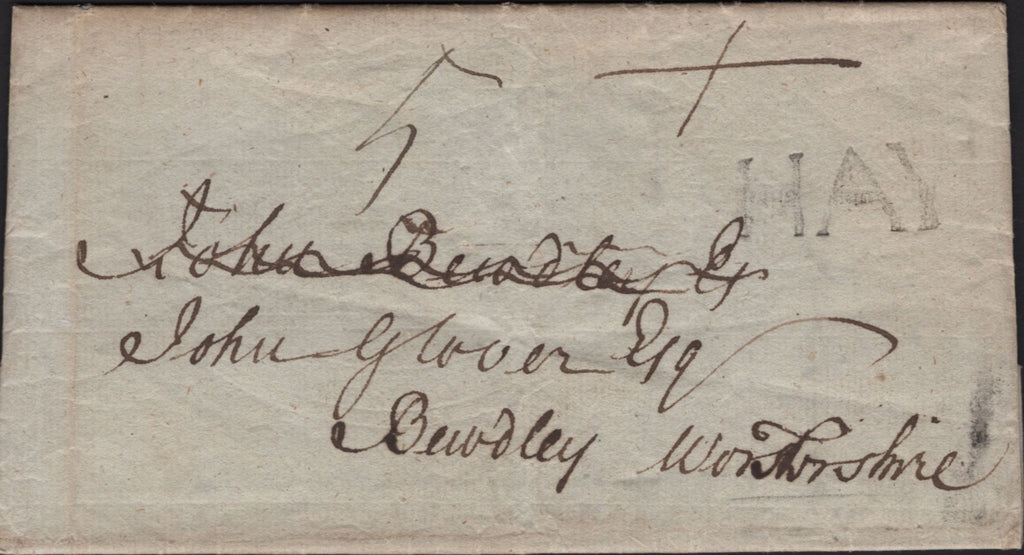 5
HAY
John Bewdley Es
John Glover Esq
Bewdley Worstorshire